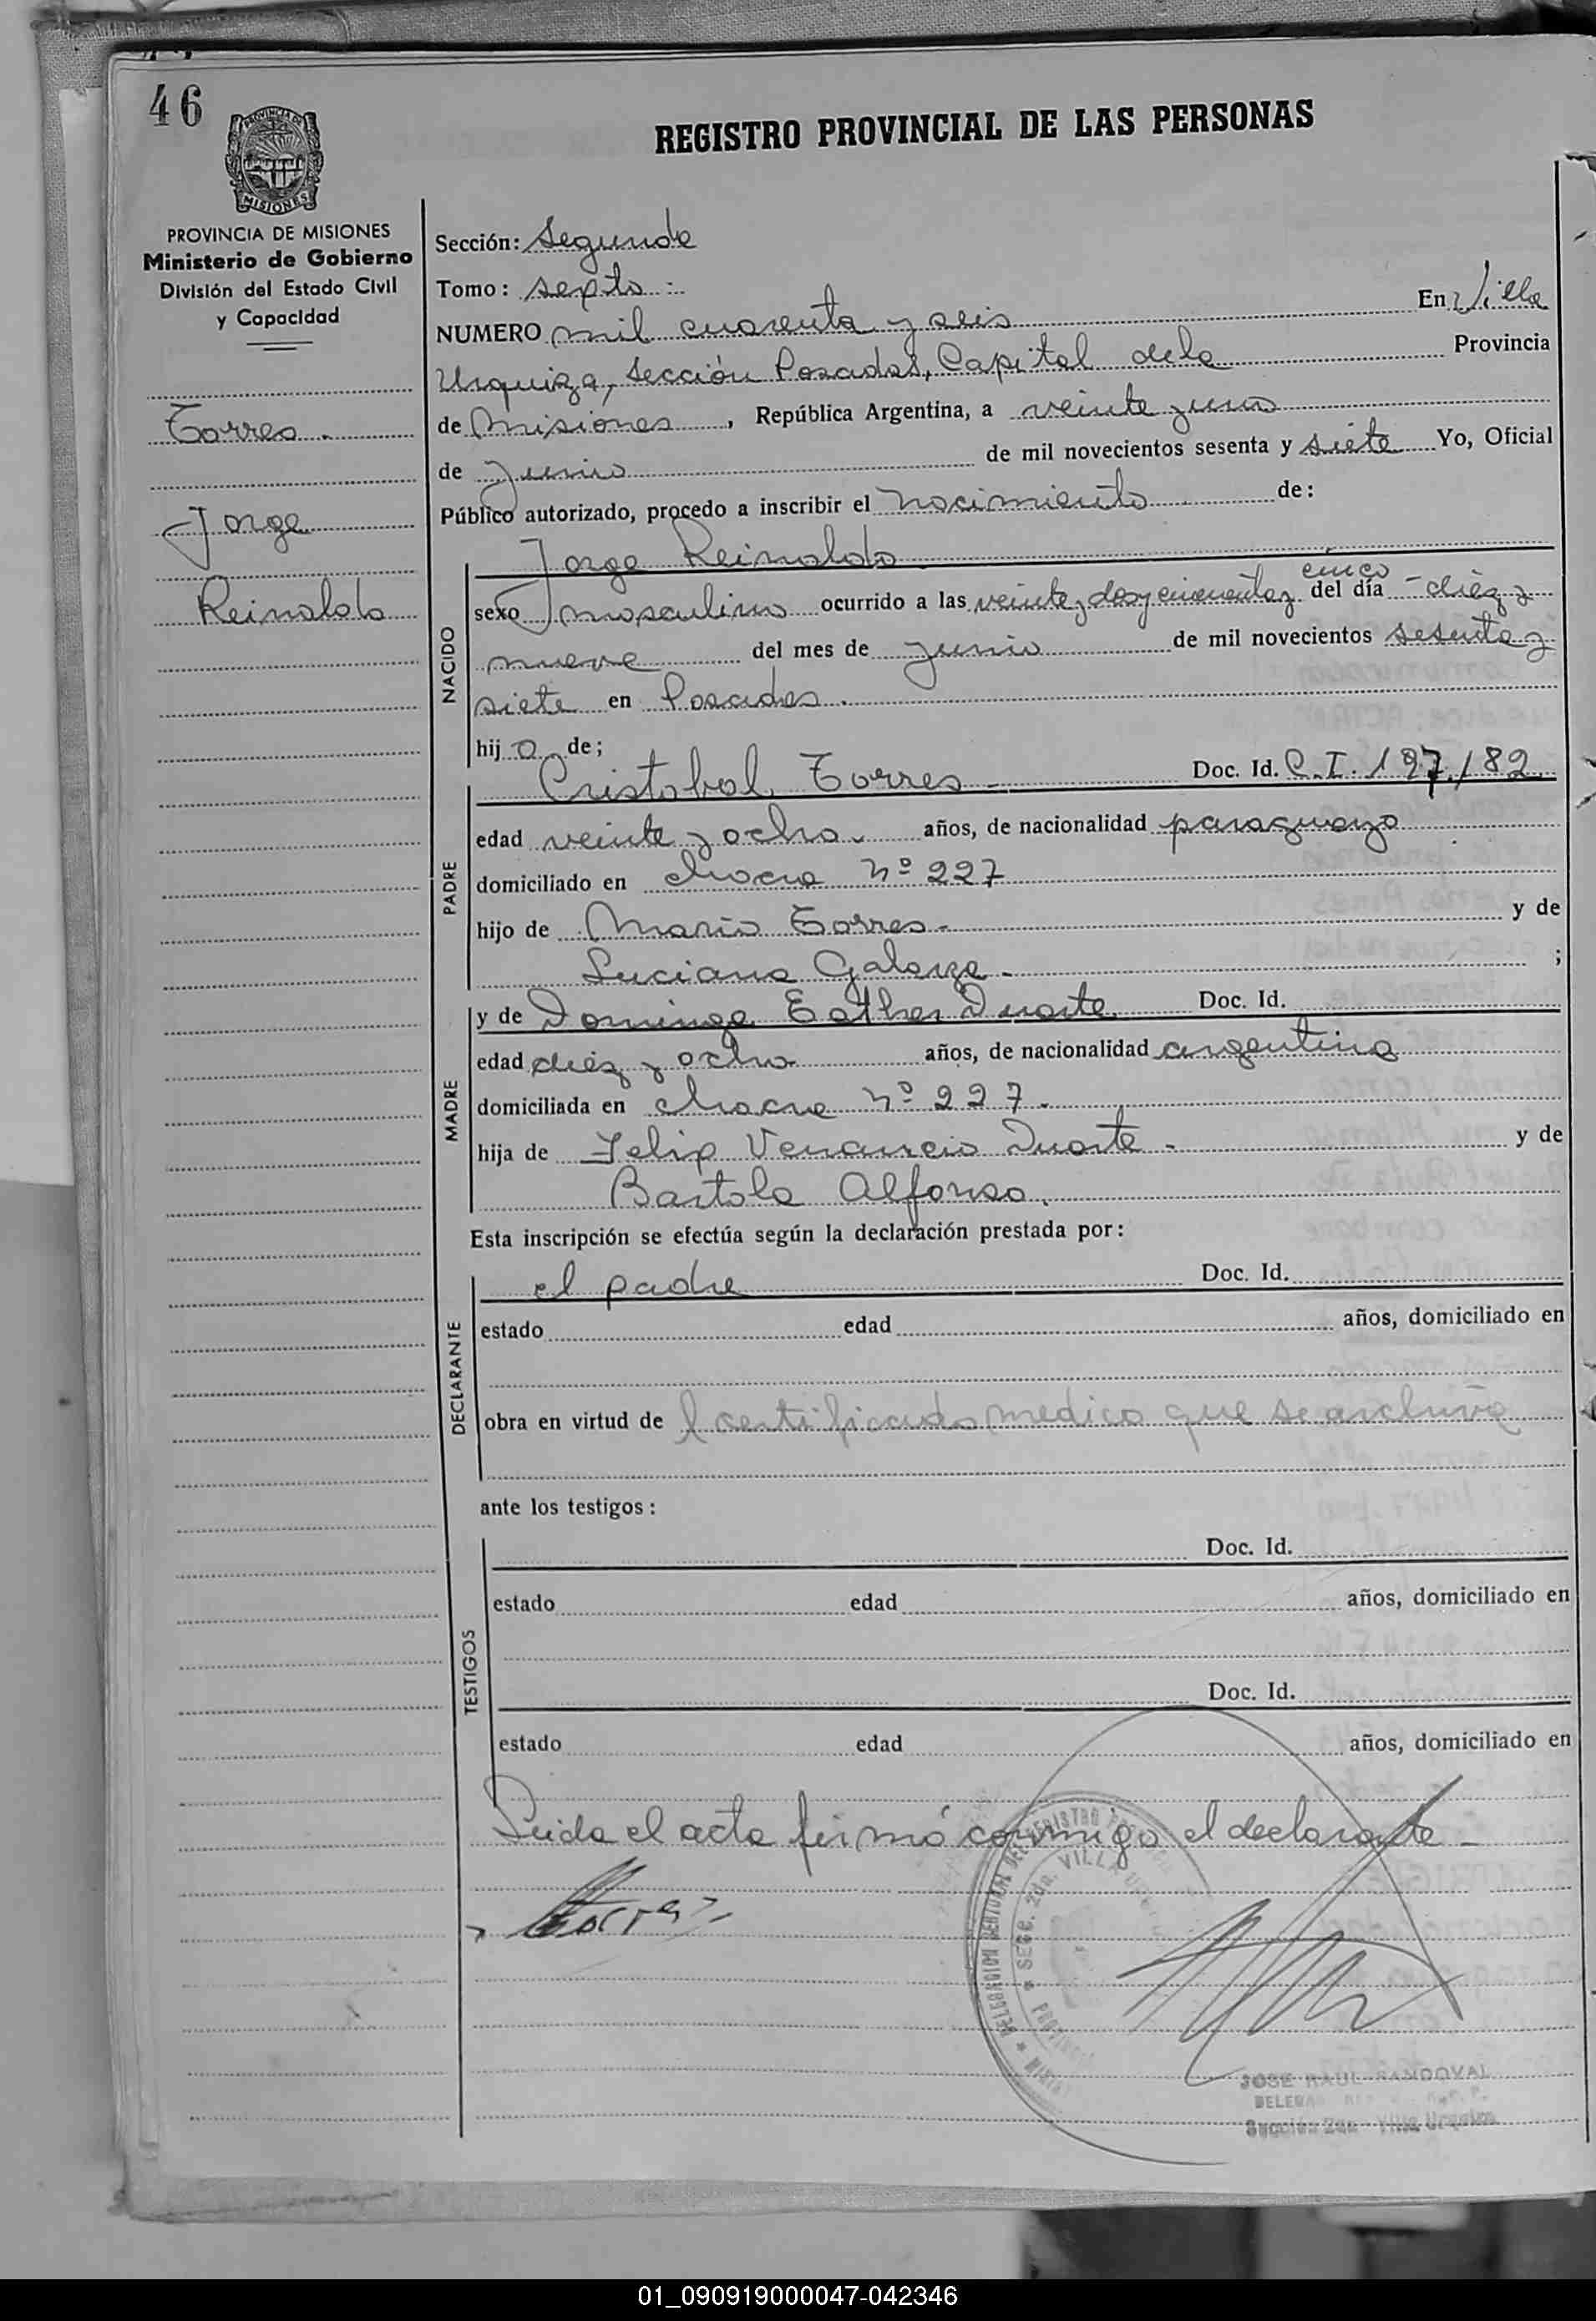 46
PROVINCIA DE
MISIONES
REGISTRO PROVINCIAL DE LAS PERSONAS
PROVINCIA DE MISIONES
Ministerio de Gobierno
División del Estado Civil
y Capacidad
Torres.
Jorge
Reinaldo
Sección: Segunda
Tomo: sexto
NUMERO mil cuarenta y seis En Villa
Urquiza, Sección Posadas, Capital de la Provincia
de Misiones, República Argentina, a veinte y uno
de junio de mil novecientos sesenta y siete Yo, Oficial
Público autorizado, procedo a inscribir el nacimiento de:
NACIDO
Jorge Reinaldo
cinco
sexo masculino ocurrido a las veinte y dos y cincuenta y del día - diez y
nueve del mes de junio de mil novecientos sesenta y
siete en Posadas.
hijo de;
PADRE
Cristobal Torres - Doc. Id. C.I. 197.182
edad veinte y ocho. años, de nacionalidad paraguayo
domiciliado en chacra Nº 227
hijo de Mario Torres - y de
Luciana Galarza - ;
MADRE
y de Dominga Esther Duarte Doc. Id.
edad diez y ocho años, de nacionalidad argentina
domiciliada en chacra Nº 227.
hija de Felix Venancio Duarte - y de
Bartola Alfonso.
Esta inscripción se efectúa según la declaración prestada por:
DECLARANTE
el padre Doc. Id.
estado edad años, domiciliado en
obra en virtud de l certificado medico que se archiva
ante los testigos:
TESTIGOS
Doc. Id.
estado edad años, domiciliado en
Doc. Id.
estado edad años, domiciliado en
Leida el acta firmó conmigo el declarante -
SECC. 2da. VILLA
JOSE RAUL SANDOVAL
Sección 2da - Villa Urquiza
01_090919000047-042346